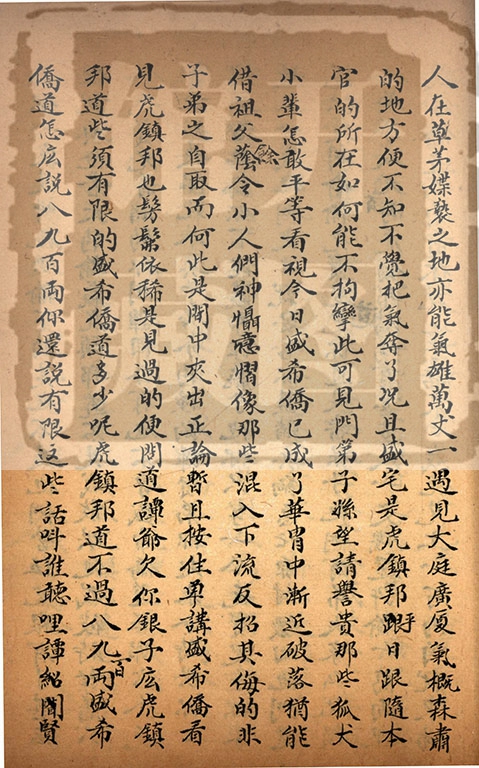 人在草茅媟褻之地亦能氣雄萬丈一遇見大庭廣厦氣概森肅
的地方便不知不覺把氣奪了况且盛宅是虎鎮邦平日跟隨本
官的所在如何能不拘攣此可見門第子孫坐請譽貴那些狐犬
小輩怎敢平等看視今日盛希僑已成了華胄中漸近破落猶能
借祖父餘蔭令小人們神懾噫慴像那些混入下流反招其侮的非
子弟之自取而何此是閒中夾出正論暫且按住单講盛希僑看
見虎鎮邦也髣髴依稀是見過的便問道譚爺欠你銀子広虎鎮
邦道些須有限的盛希僑道多少呢虎鎮邦道不過八九百両盛希
僑道怎広説八九百両你還説有限這些話叫誰聽哩譚紹聞賢